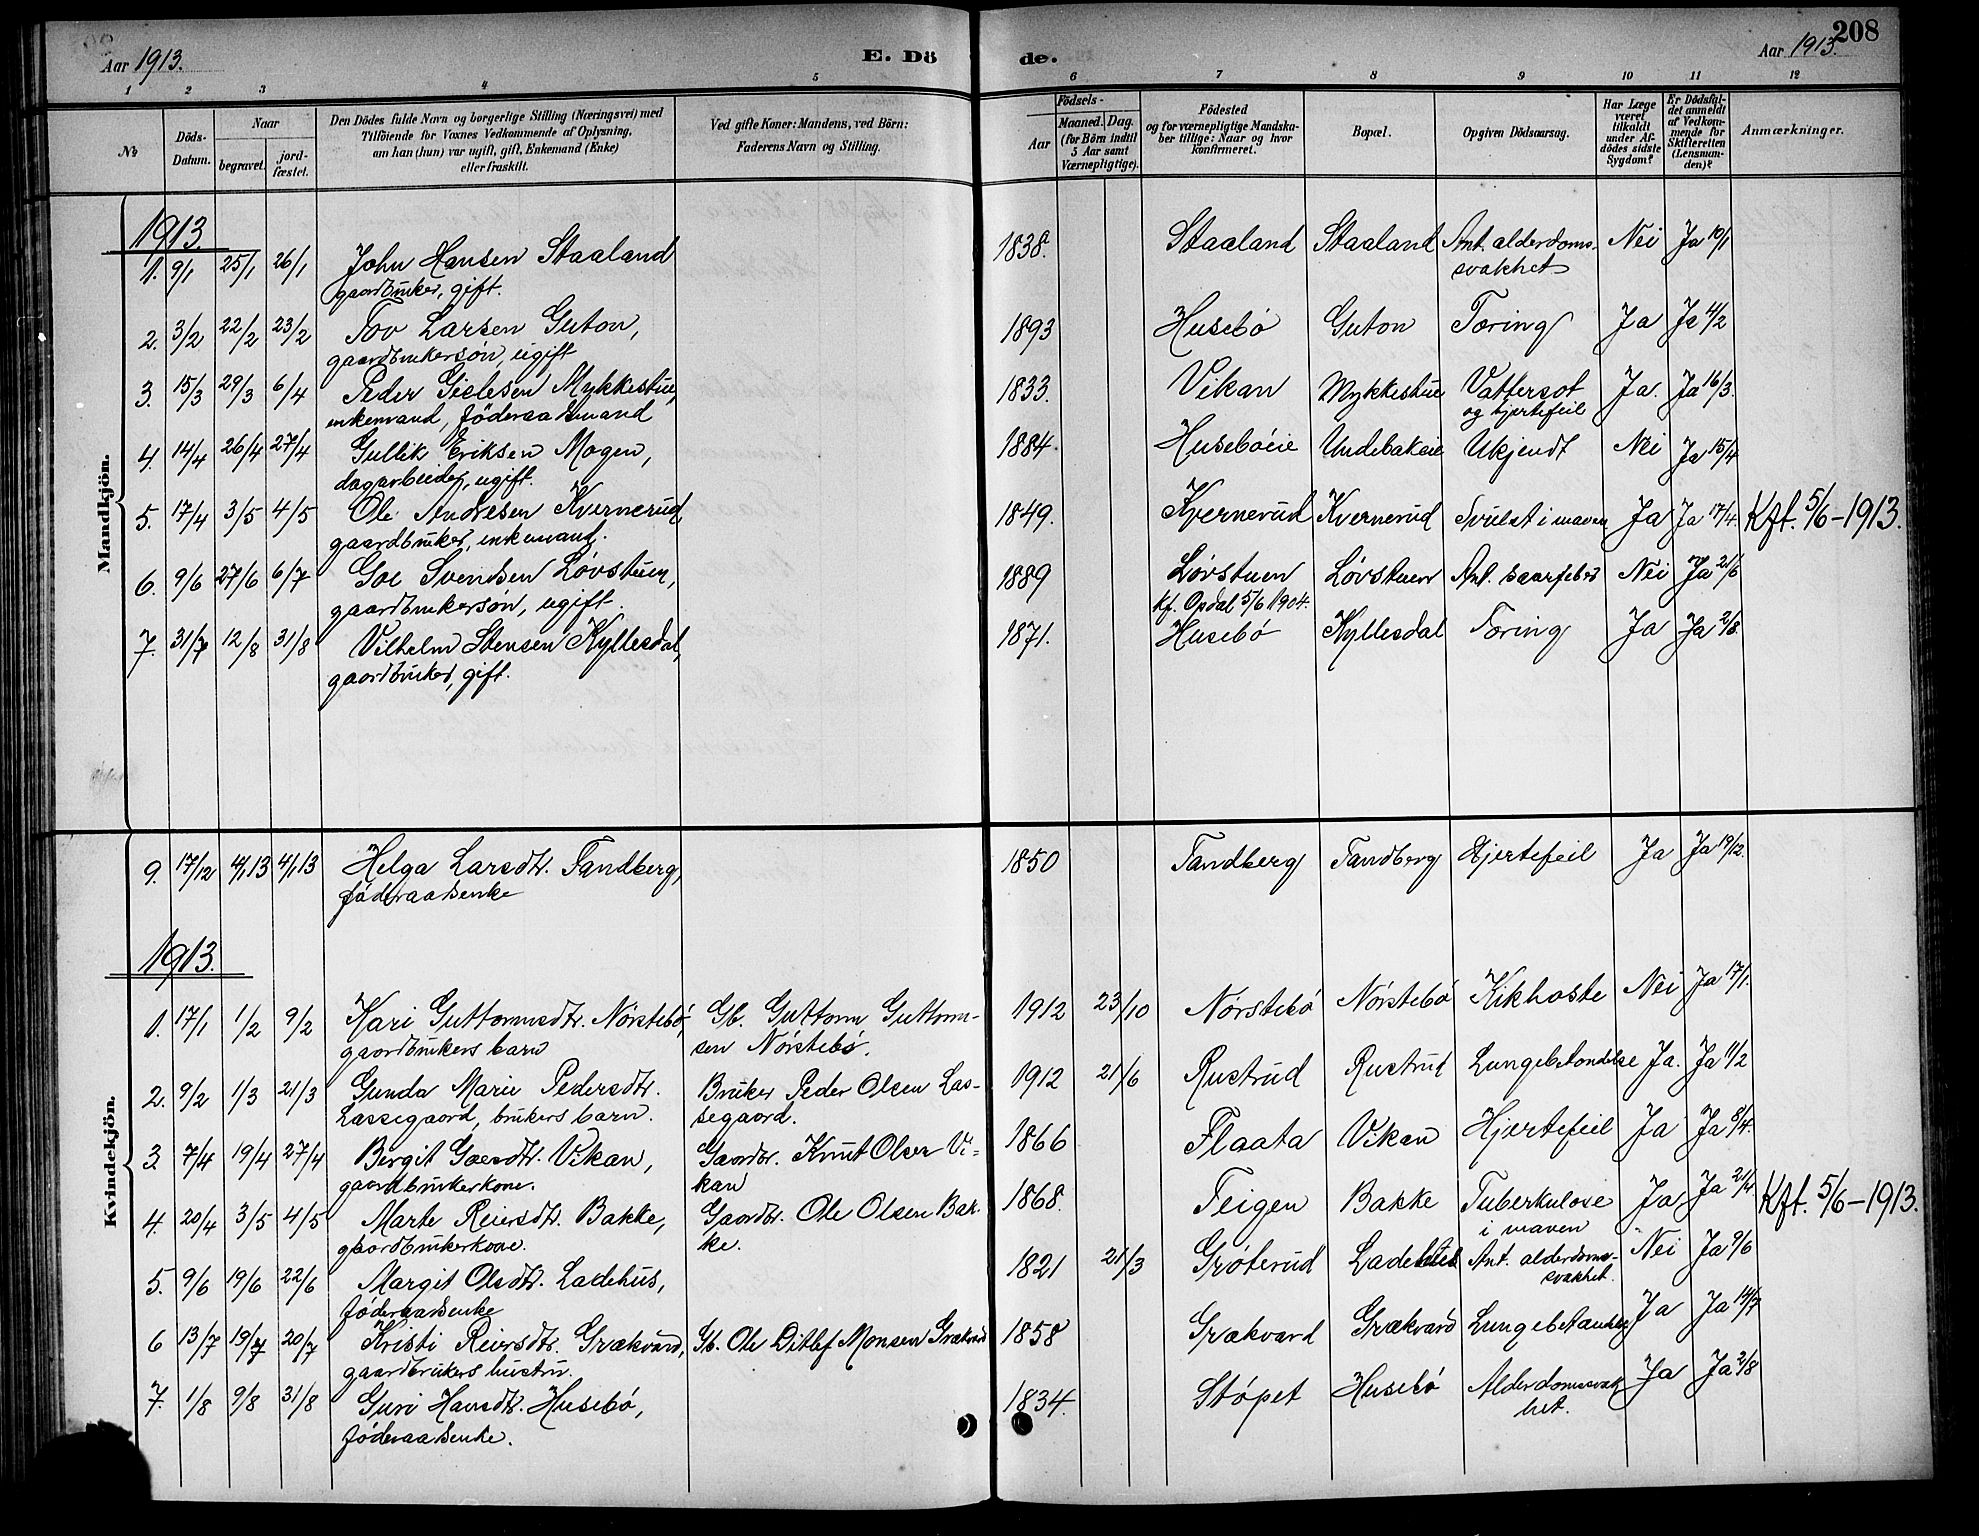 Aar 1913.
E. Dö
de.
Aar 1913.
208
1 2 3 4 5 6 7 8 9 10 11 12
No
Döds-Datum.
Naar
begravet.
jord-fæstet.
Den Dödes fulde Navn og borgerlige Stilling (Næringsvei) med
Tilföiende for Voxnes Vedkommende af Oplysning,
om han (hun) var ugift, gift, Enkemand (Enke)
eller fraskilt.
Ved gifte Koner: Mandens, ved Börn:
Faderens Navn og Stilling.
Födsels-
Aar
Maaned. Dag.
(for Börn indtil
5 Aar samt
Værnepligtige).
Födested
og for værnepligtige Mandska-
ber tillige: Naar og hvor
konfirmeret.
Bopæl.
Opgiven Dödsaarsag.
Har Læge
været
tilkaldt
under Af-
dödes sidste
Sygdom?
Er Dödsfal-
det anmeldt
af Vedkom-
mende for
Skifteretten
(Lensman-
den)?
Anmærkninger.
Mandkjön.
1913.
1. 9/1 25/1 26/1 John Hansen Staaland 1838. Staaland Staaland Ant. alderdoms- Nei Ja 10/1
gaardbruker, gift. svakhet
2. 3/2 22/2 23/2 Tov Larsen Guton, 1893 Husebö Guton Tæring Ja Ja 4/2
gaardbrukersön, ugift
3. 15/3 29/3 6/4 Peder Gislesen Mykkestue, 1833. Vikan Mykkestue Vattersot Ja. Ja 16/3.
enkemand, föderaadsmand og hjertefeil
4. 14/4 26/4 27/4 Gullik Eriksen Mogen, 1884. Huseböeie Undebakeie Ukjendt Nei Ja 15/4
dagarbeider, ugift.
5. 17/4 3/5 4/5 Ole Andresen Kvernerud, 1849. Kvernerud Kvernerud Svulst i maven Ja Ja 17/4 Kft. 5/6-1913.
gaardbruker, enkemand.
6. 9/6 27/6 6/7 Goe Svendsen Lövstuen, 1889 Lövstuen Lövstuen Ant. Nei Ja 21/6
gaardbrukersön, ugift. Kf. Opdal 5/6 1904.
7. 31/7 12/8 31/8 Vilhelm Stensen Kyllesdal, 1871. Husebö Kyllesdal Tæring Ja Ja 2/8.
gaardbruker, gift.
Kvindekjön.
9. 17/12 4/1 13 4/1 13 Helga Larsdtr. Tandberg, 1850 Tandberg Tandberg Hjertefeil Ja Ja 19/12.
föderaadsenke
1913.
1. 17/1 1/2 9/2 Kari Guttormsdtr. Nörstebö, Gb. Guttorm Guttorm- 1912 23/10 Nörstebö Nörstebö Kikhoste Nei Ja 17/1.
gaardbrukers barn sen Nörstebö.
2. 9/2 1/3 21/3 Gunda Marie Pedersdtr. Bruker Peder Olsen Las- 1912 21/6 Rustrud Rustrud Lungebetændelse Ja. Ja 11/2
Lassegaard, brukers barn. segaard.
3. 7/4 19/4 27/4 Bergit Goesdtr. Vikan, Gaardbr. Knut Olsen Vi- 1866 Flaata Vikan Hjertefeil Ja Ja 8/4.
gaardbrukerkone. kan
4. 20/4 3/5 4/5 Marte Reiersdtr. Bakke, Gaardbr. Ole Olsen Bak- 1868. Feigen Bakke Tuberkulose Ja Ja 21/4. Kft. 5/6-1913.
gaardbrukerkone. ke. i maven
5. 9/6 19/6 22/6 Margit Olsdtr. Ladehus, 1821 21/3 Gröterud Ladehus Ant. alderdoms- Nei Ja 9/6
föderaadsenke svakhet.
6 13/7 19/7 20/7 Kristi Reiersdtr. Grækvard, Gb. Ole Ditlef Monsen Grækvard 1858 Grækvard Grækvard Lungebetændelse Ja Ja 14/7
gaardbrukers hustru.
7. 1/8 9/8 31/8 Guri Hansdtr. Husebö, 1834. Stöpet Husebö Alderdomssvak- Ja Ja 2/8
föderaadsenke. het.